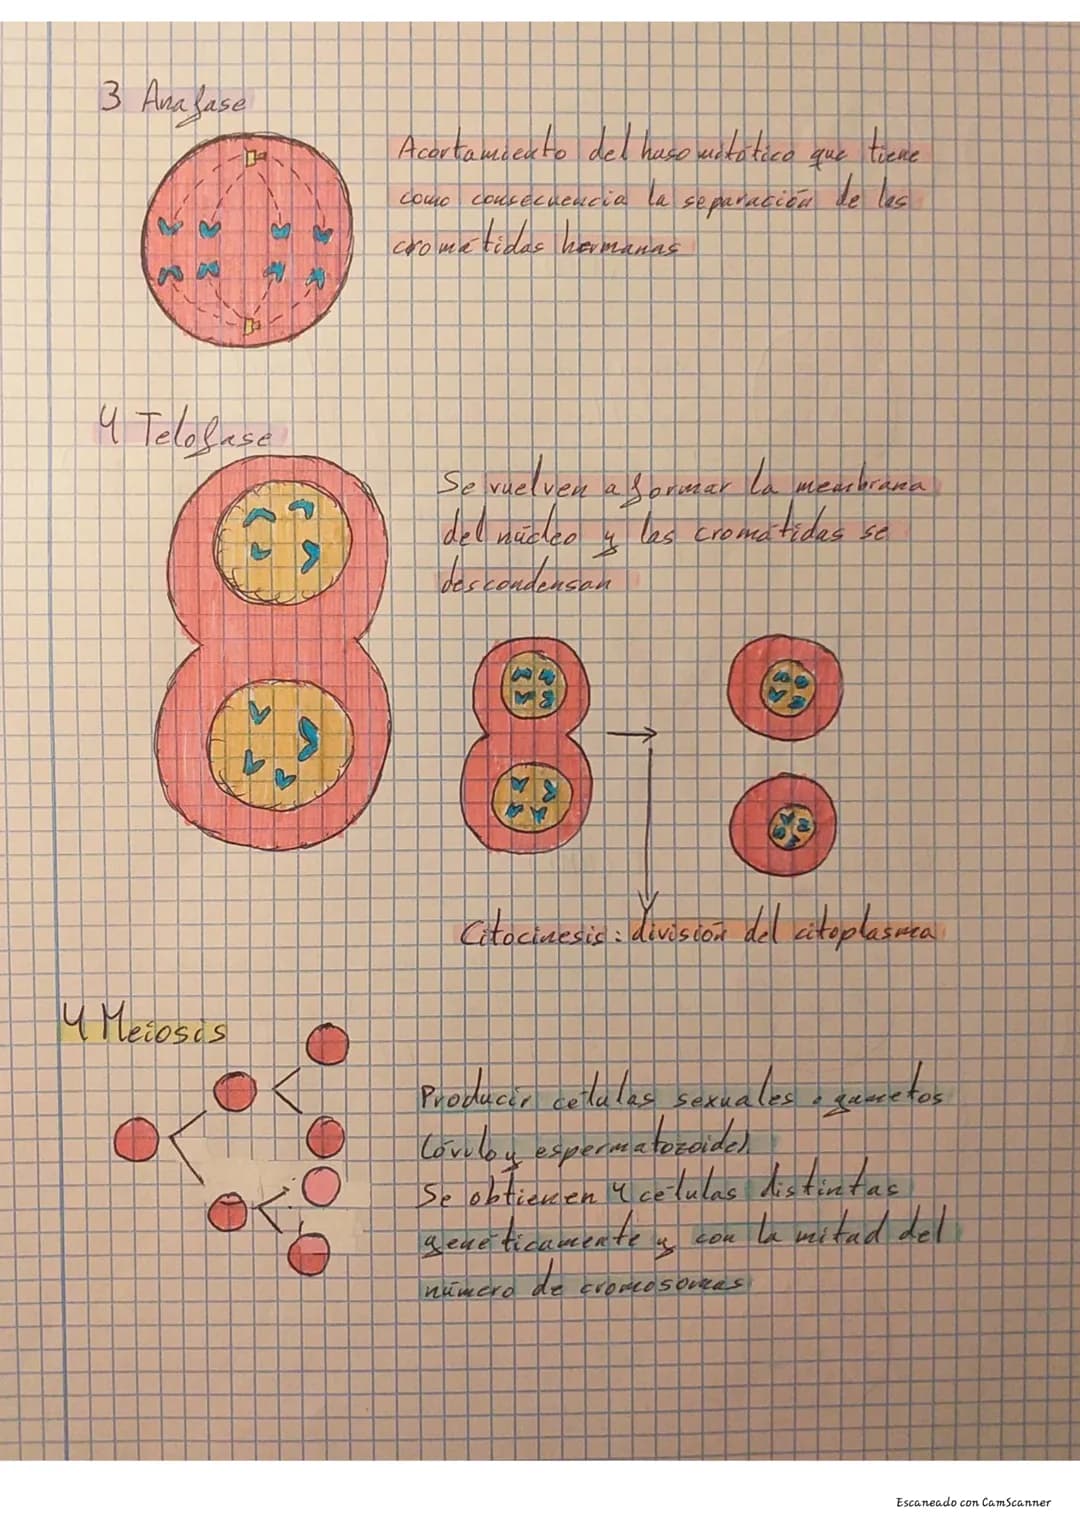 3 Anafase
Acortamiento del huso mitótico que tiene
como consecuencia la separación de las
cromátidas hermanas
4 Telofase
Se vuelven a formar la membrana
del núcleo y las cromátidas se
descondensan
Citocinesis: división del citoplasma
4 Meiosis
Producir células sexuales o gametos
(óvulo y espermatozoide)
Se obtienen 4 células distintas
genéticamente y con la mitad del
número de cromosomas
Escaneado con CamScanner